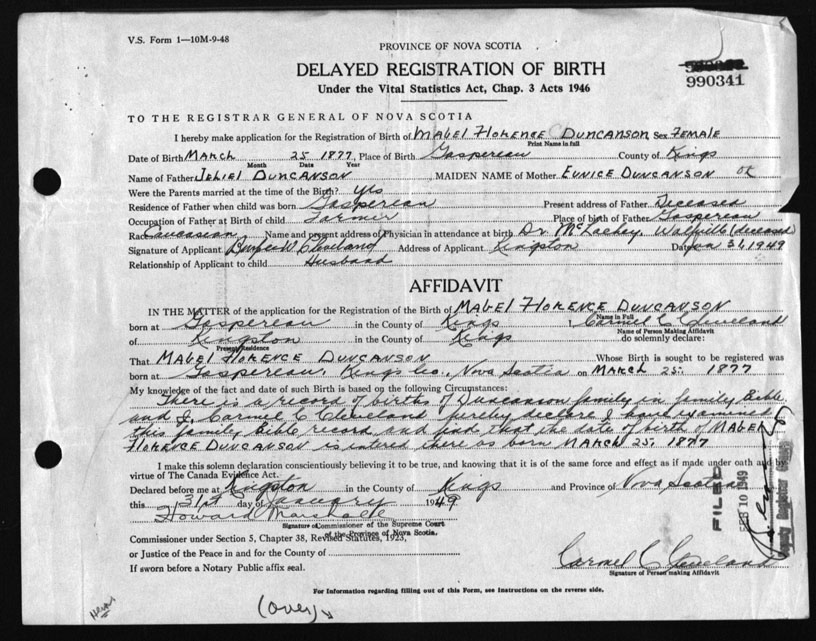 V.S. Form 1—10M-9-48
PROVINCE OF NOVA SCOTIA
DELAYED REGISTRATION OF BIRTH
990341
Under the Vital Statistics Act, Chap. 3 Acts 1946
TO THE REGISTRAR GENERAL OF NOVA SCOTIA
I hereby make application for the Registration of Birth of MABEL FLORENCE DUNCANSON Sex FEMALE
Print Name in full
Date of Birth MARCH 25 1877, Place of Birth Gaspereau County of Kings
Month Date Year
Name of Father JEHIEL DUNCANSON, MAIDEN NAME of Mother EUNICE DUNCANSON OK
Were the Parents married at the time of the Birth? yes
Residence of Father when child was born Gaspereau Present address of Father Deceased
Occupation of Father at Birth of child Farmer Place of birth of Father Gaspereau
Race Caucasian Name and present address of Physician in attendance at birth Dr. Wolfville (deceased)
Signature of Applicant Cleveland Address of Applicant Kingston Date Jan 31, 1949
Relationship of Applicant to child Husband
AFFIDAVIT
IN THE MATTER of the application for the Registration of the Birth of MABEL FLORENCE DUNCANSON
Name in Full
born at Gaspereau in the County of Kings I, Carmel C Cleveland
Name of Person Making Affidavit
of Kingston in the County of Kings do solemnly declare:
Present Residence
That MABEL FLORENCE DUNCANSON Whose Birth is sought to be registered was
born at Gaspereau, Kings Co., Nova Scotia on MARCH 25. 1877
My knowledge of the fact and date of such Birth is based on the following Circumstances:
There is a record of births of Duncanson family in family Bible
and I, Carmel C Cleveland hereby declare I have examined
this family Bible record and find that the date of birth of MABEL
FLORENCE DUNCANSON is entered there as born MARCH 25. 1877
I make this solemn declaration conscientiously believing it to be true, and knowing that it is of the same force and effect as if made under oath and by
virtue of The Canada Evidence Act.
Declared before me at Kingston in the County of Kings and Province of Nova Scotia
this 31st day of January 1949
Howard Marshall
Signature of Commissioner of the Supreme Court
of the Province of Nova Scotia.
Commissioner under Section 5, Chapter 38, Revised Statutes, 1923,
or Justice of the Peace in and for the County of
If sworn before a Notary Public affix seal.
Carmel C Cleveland
Signature of Person making Affidavit
FILED
FEB 10 1949
Deputy Registrar General
For Information regarding filling out of this Form, see Instructions on the reverse side.
(over)